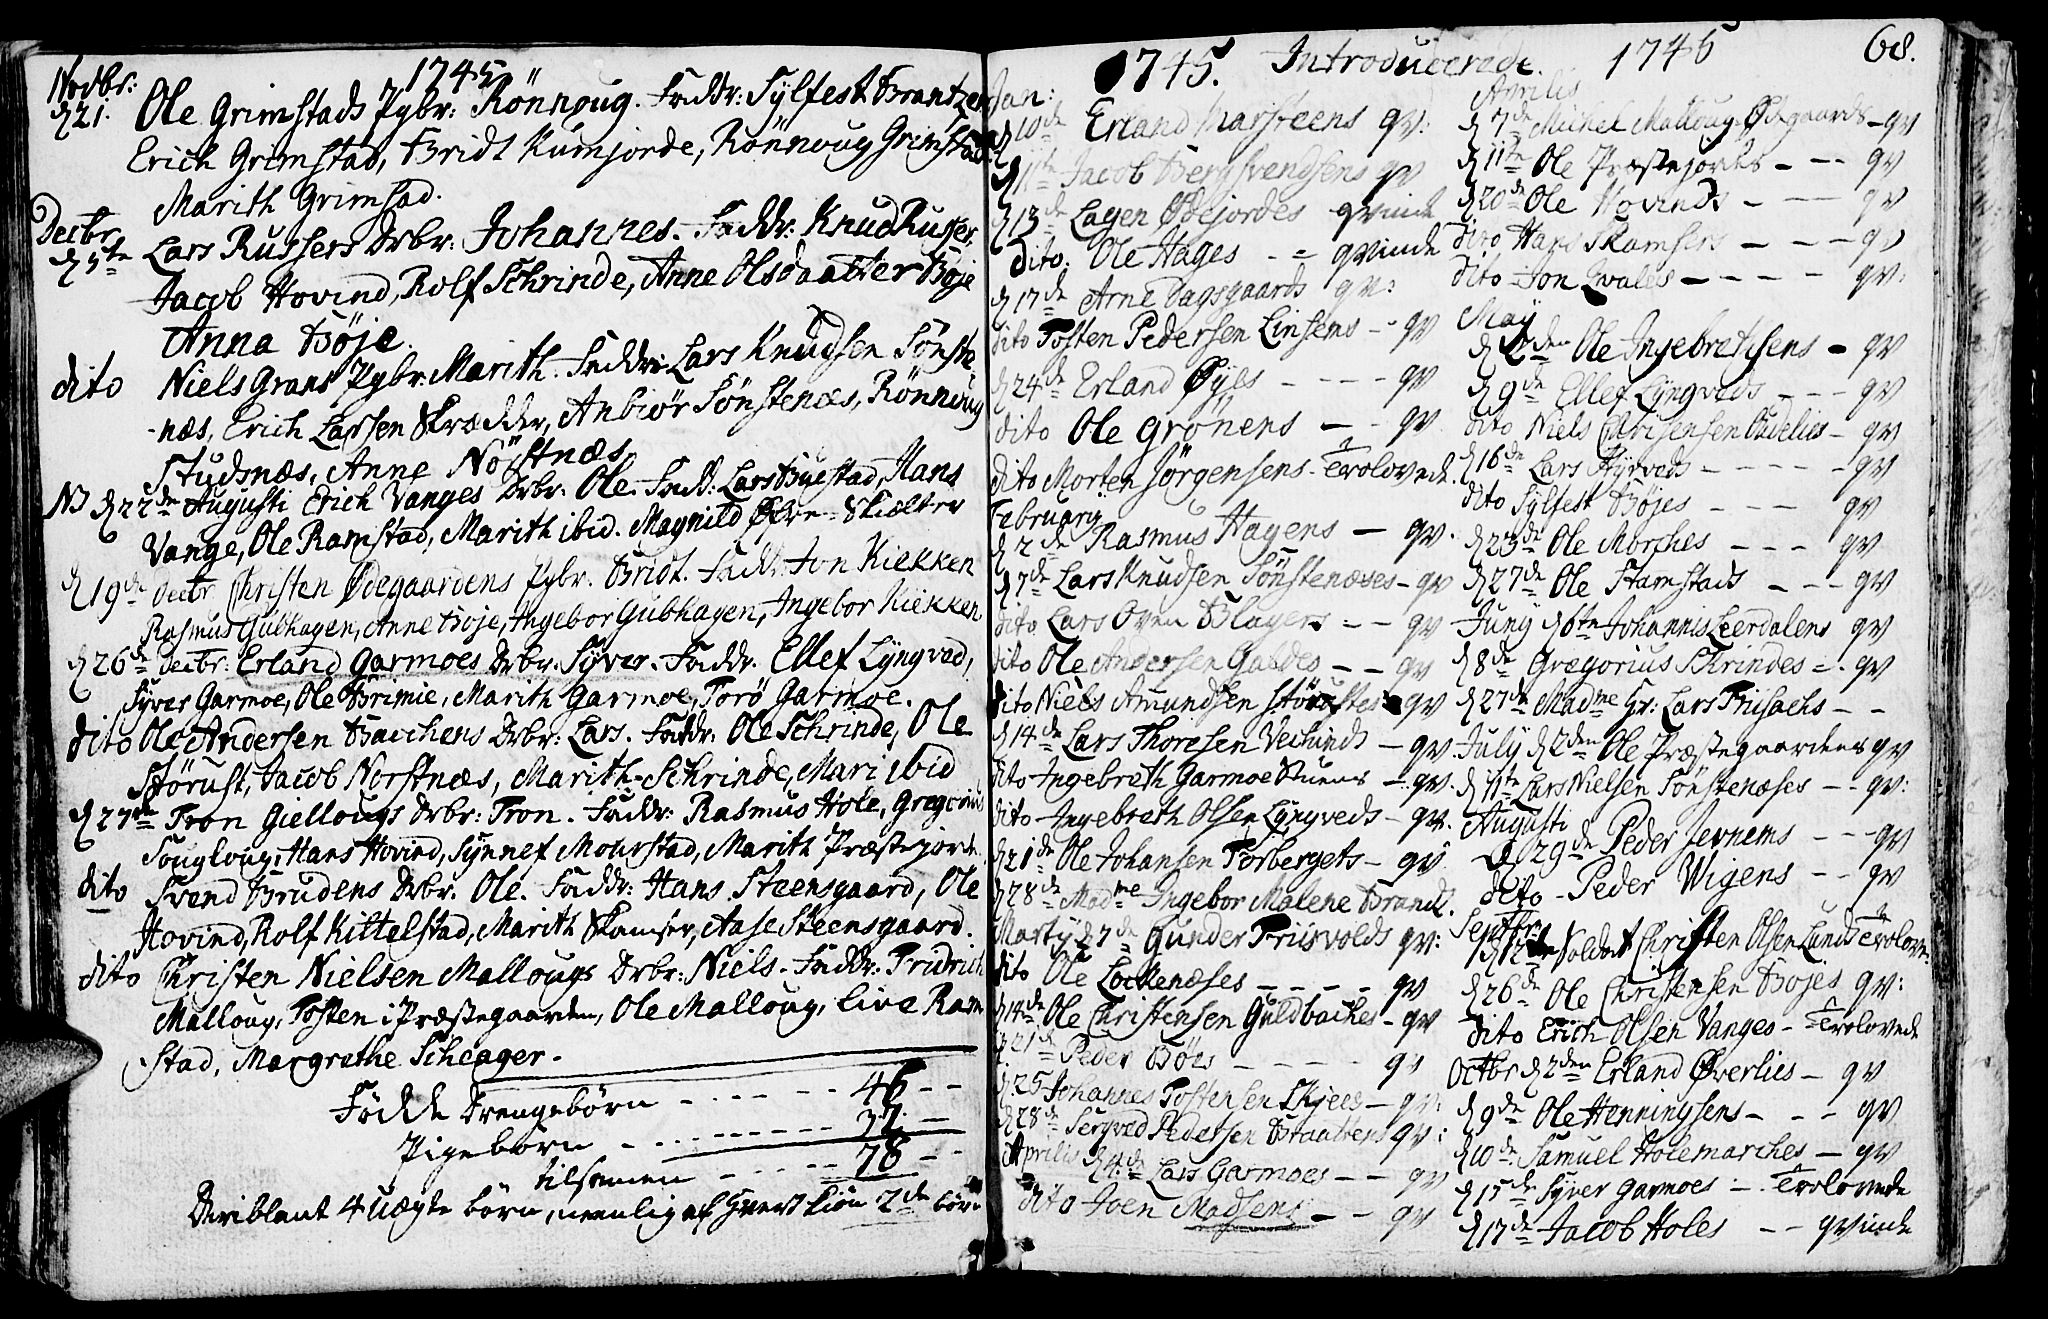 1745
Novbr:
d 21. Ole Grimstads Pgbr: Rönnoug. Faddr: Sylfest Brantzen
Erich Grimstad, Bridt Kumjorde, Rönnoug Grimstad
Marith Grimstad.
Decbr
d 5te Lars Russers Drbr: Johannes. Faddr: Knud Russer,
Jacob Hovind, Rolf Schrinde, Anne Olsdaatter Bøje
Anna Bøje.
dito Niels Grans Pgbr Marith. Faddr: Lars Knudsen Sönste
næs, Erich Larsen Skrædder, Anbiør Sönstenæs, Rönnoug
Studsnæs, Anne Nöstnæs
NB d 22de Augusti Erich Vanges Drbr: Ole. Fadd: Lars Buestad, Hans
Vange, Ole Ramstad, Marith ibid. Magnild Øfre-Skielter
d 19de Decbr Christen Ødegaardens Pgbr. Bridt. Fadd: Jon Kiekken
Rasmus Gubhagen, Anne Bøje, Ingebor Gubhagen, Ingebor Kiekken
d 26de Decbr: Erland Garmoes Drbr: Syver. Faddr. Ellef Lyngved,
Syver Garmoe, Ole Brimie, Marith Garmoe, Torø Garmoe.
dito Ole Andersen Bacchens Drbr: Lars. Faddr: Ole Schrinde, Ole
Störust, Jacob Norstnæs, Marith Schrinde, Mari ibid
d 27de Tron Giellougs Drbr: Tron. Faddr: Rasmus Hole, Gregorius
Sougloug, Hans Hovind, Synnef Mohrstad, Marith Præstejorde
dito Svend Brudens Drbr. Ole. Faddr: Hans Steensgaard, Ole
Hovind, Rolf Kittelstad, Marith Skamser, Aase Steensgaard.
dito Christen Nielsen Mallougs Drbr: Niels. Faddr: Fridrich
Malloug, Tosten i Præstegaarden, Ole Malloug, Live Ram
stad, Margrethe Scheager.
Födde Drengebörn - - - - - 46 - -
Pigebörn - - - - - - 32 -
tilsamen - - - - - 78 - -
Deriblant 4 uægte börn, nemlig af hvert kiön 2de börn
1745. Introducerede. 1745 68.
Jan:
d 10de Erland Marsteens qv:
d 11te Jacob Bergsvendsens qv
d 13de Lagen Ødejordes qvinde
dito. Ole Hages - - qvinde
d 17de Arne Dagsgaards qv:
dito Tosten Pedersen Linsens - - qv
d 24de Erland Øyes - - - - qv
dito Ole Grønens - - qv
dito Morten Jörgensens - Trolovede.
February
d 2de Rasmus Hagens - qv.
d 7de Lars Knudsen Sönstenæses - qv
dito Lars Blagers. - - qv
dito Ole Andersen Galdes - - qv
dito Niels Amundsen qv
d 14de Lars Thoresen - qv.
dito Ingebreth Garmoe Stuens - qv.
dito Ingebreth Olsen Lyngveds - qv.
d 21de Ole Johansen Torbergets - qv.
d 28de Madme Ingebor Malene Brandt.
Marty d 7de Gunder Friisvolds qv:
dito Ole Lockenæses - - - - qv
d 14de Ole Christensen Guldbackes - qv
d 21de Peder Böes - - - - qv
d. 25 Johannes Tostensen Skjees - qv:
d 28de Pedersen Braattens qv:
Aprilis d 4de Lars Garmoes - - qv
dito Joen Madsens - - qv
Aprilis
d 7de Michel Malloug Ødegaards - qv
d 11te Ole Præstejordes - - - qv
d 20de Ole Hovinds - - - qv
dito Hans Skamsers - - - qv
dito Jon Qvales - - - - qv:
May
d 2den Ole Ingebretsens - qv
d 9de Ellef Lyngveds - - - qv
dito Niels Christensen - qv
d 16de Lars - - - - qv
dito Sylfest Bøjes - - - qv
d 23de Ole Morches - - - qv
d 27de Ole Stamstads - - - qv
Juny d 6te Johannis Leerdalens qv
d 8de Gregorius Schrindes - . qv
d 27de Madme Hr: Lars Friisachs - -
July d 2den Ole Præstegaardens qv
d 11te Lars Nielsen Sönstenæses - - qv:
Augusti
d 29de Peder Jevnems - - - qv
dito - Peder Wigens - - qv
Septbr:
d 12te Soldat Christen Olsen Lunds Trolov:
d 26de Ole Christensen Bøjes qv:
dito Erich Olsen Vanges - Trolovede
Octbr d 2den Erland Øverlies - qv
d 9de Ole Henningsens - - - qv
d 10de Samuel Holemarches - qv
d 15de Syver Garmoes - . Trolovede
d 17de Jacob Holes - - qvinde